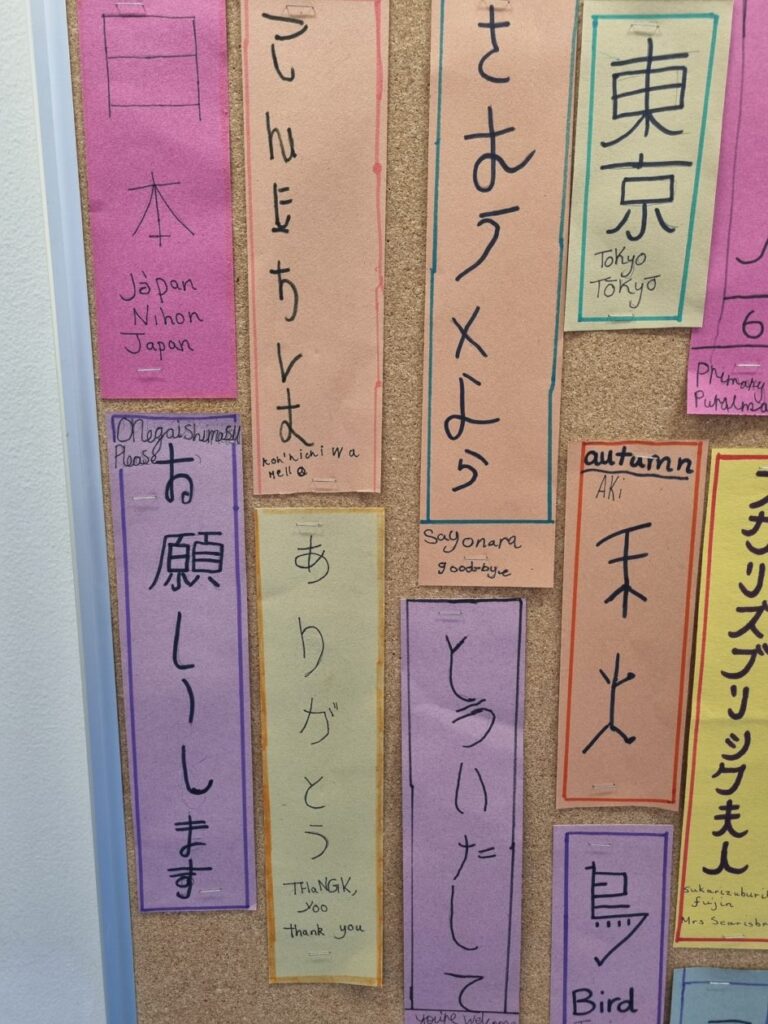 日本
Japàn
Nihon
Japan
こんにちは
Kon'nichi wa
Hello
さようなら
Sayonara
goodbye
東京
Tokyo
Tōkyō
6
Primary
Puraima
Onegaishimasu
Please
お願いします
ありがとう
THaNGK,
yoo
thank you
とういたして
you're welcome
autumn
AKi
禾火
カリズブリック夫人
sukarizuburi
fujin
Mrs Searisbr
鳥
Bird